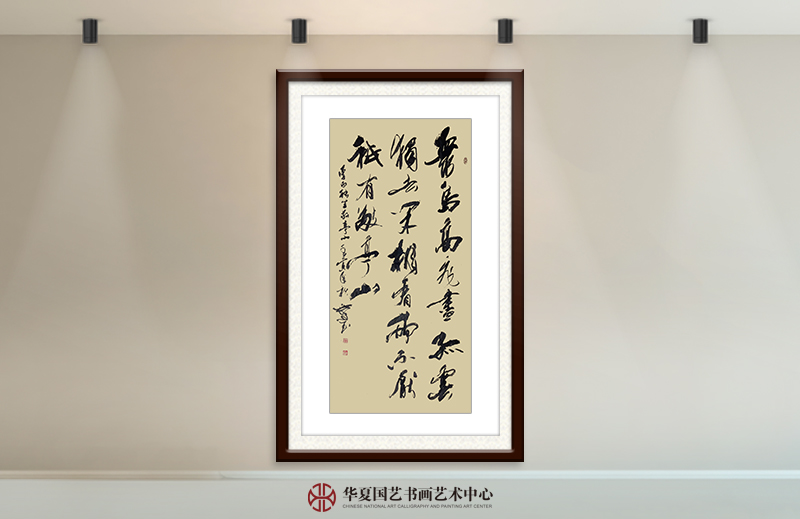 眾鳥高飛盡孤雲
獨去閑相看兩不厭
祇有敬亭山
李白獨坐敬亭山
华夏国艺书画艺术中心
CHINESE NATIONAL ART CALLIGRAPHY AND PAINTING ART CENTER